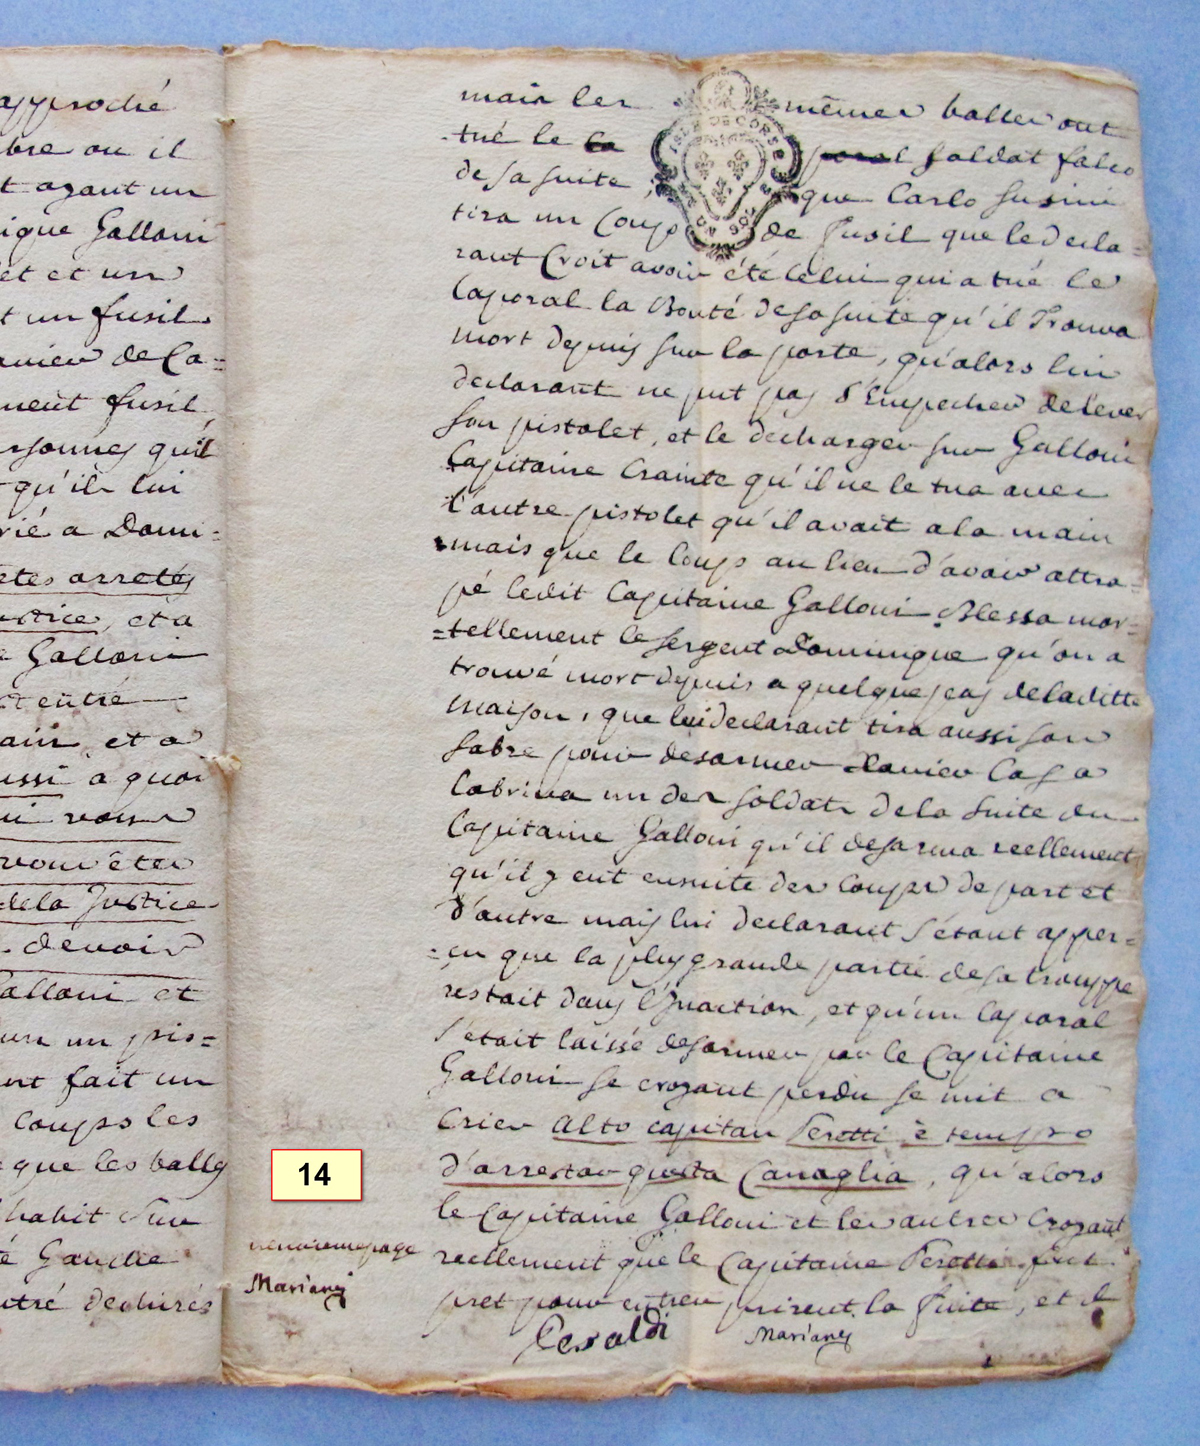 approché
bre ou il
t ayant un
ique Galloni
et et un
t un fusil
avier de Ca=
ment fusil
rsonnes qu'il
qu'ils lui
rié a Domi=
rtes arretés
ustice, et a
e Galloni
t entré
ain, et a
ussi a quoi
ui vous
vous êtes
de la Justice
devoir
Galloni et
un un pis=
ont fait un
coups les
e que les balles
habit sur
é Gauche
utré dechirés
mais les mêmes balles ont
tué le ca poral soldat falco
de sa suite, que Carlo Susini
ISLE DE CORSE
UN SOL
tira un Coup de fusil que le decla=
rant Croit avoir été Celui qui a tué le
Caporal la Bonté de sa suite qu'il Trouva
mort depuis sur la porte, qu'alors lui
declarant ne put pas s'Empecher de lever
son pistolet, et le decharger sur Galloni
Capitaine Crainte qu'il ne le tua avec
l'autre pistolet qu'il avait a la main
mais que le Coup au lieu d'avoir attra=
pé ledit Capitaine Galloni Blessa mor=
=tellement le sergent Dominique qu'on a
trouvé mort depuis a quelque pas de laditte
maison, que lui declarant tira aussi son
sabre pour desarmer Xavier Casa
Cabriva un des soldats de la suite du
Capitaine Galloni qu'il desarma reellement
qu'il y eut ensuite des Coups de part et
d'autre mais lui declarant s'étant apper=
=cu que la plus grande partie de sa trouppe
restait dans l'Inaction, et qu'un Caporal
s'était laissé desarmer par le Capitaine
Galloni se croyant perdu se mit a
Crier Alto capitan Peretti è tempo
d'arrestar questa Canaglia, qu'alors
le Capitaine Galloni et les autres Croyant
reellement que le Capitaine Peretti fut
pret pour entrer, prirent la fuite, et il
Peraldi Mariani
14
page
Mariani